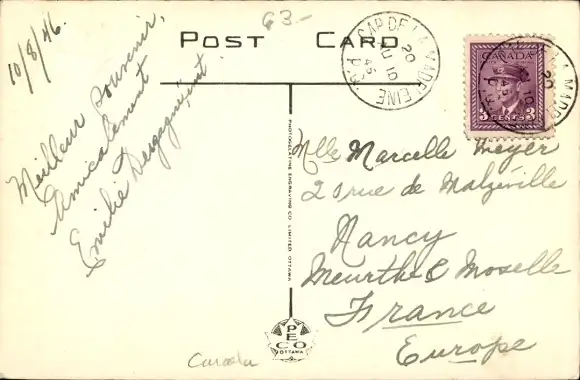 10/8/46.
Meilleur souvenir,
Amicalement
Emilie Desgagnéent
63-
POST CARD
CAP DE LA MADELEINE
20
JU 10
46
P.Q.
CANADA
3 CENTS 3
DE LA MAD
20
Mlle Marcelle Meyer
20 rue de Malzéville
Nancy
Meurthe & Moselle
France
Europe
PHOTOGELATINE ENGRAVING CO LIMITED OTTAWA
PECO
OTTAWA
Canada